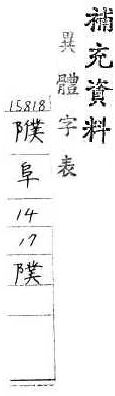 補充資料
異體字表
15818
䧤
阜
14
17
䧤